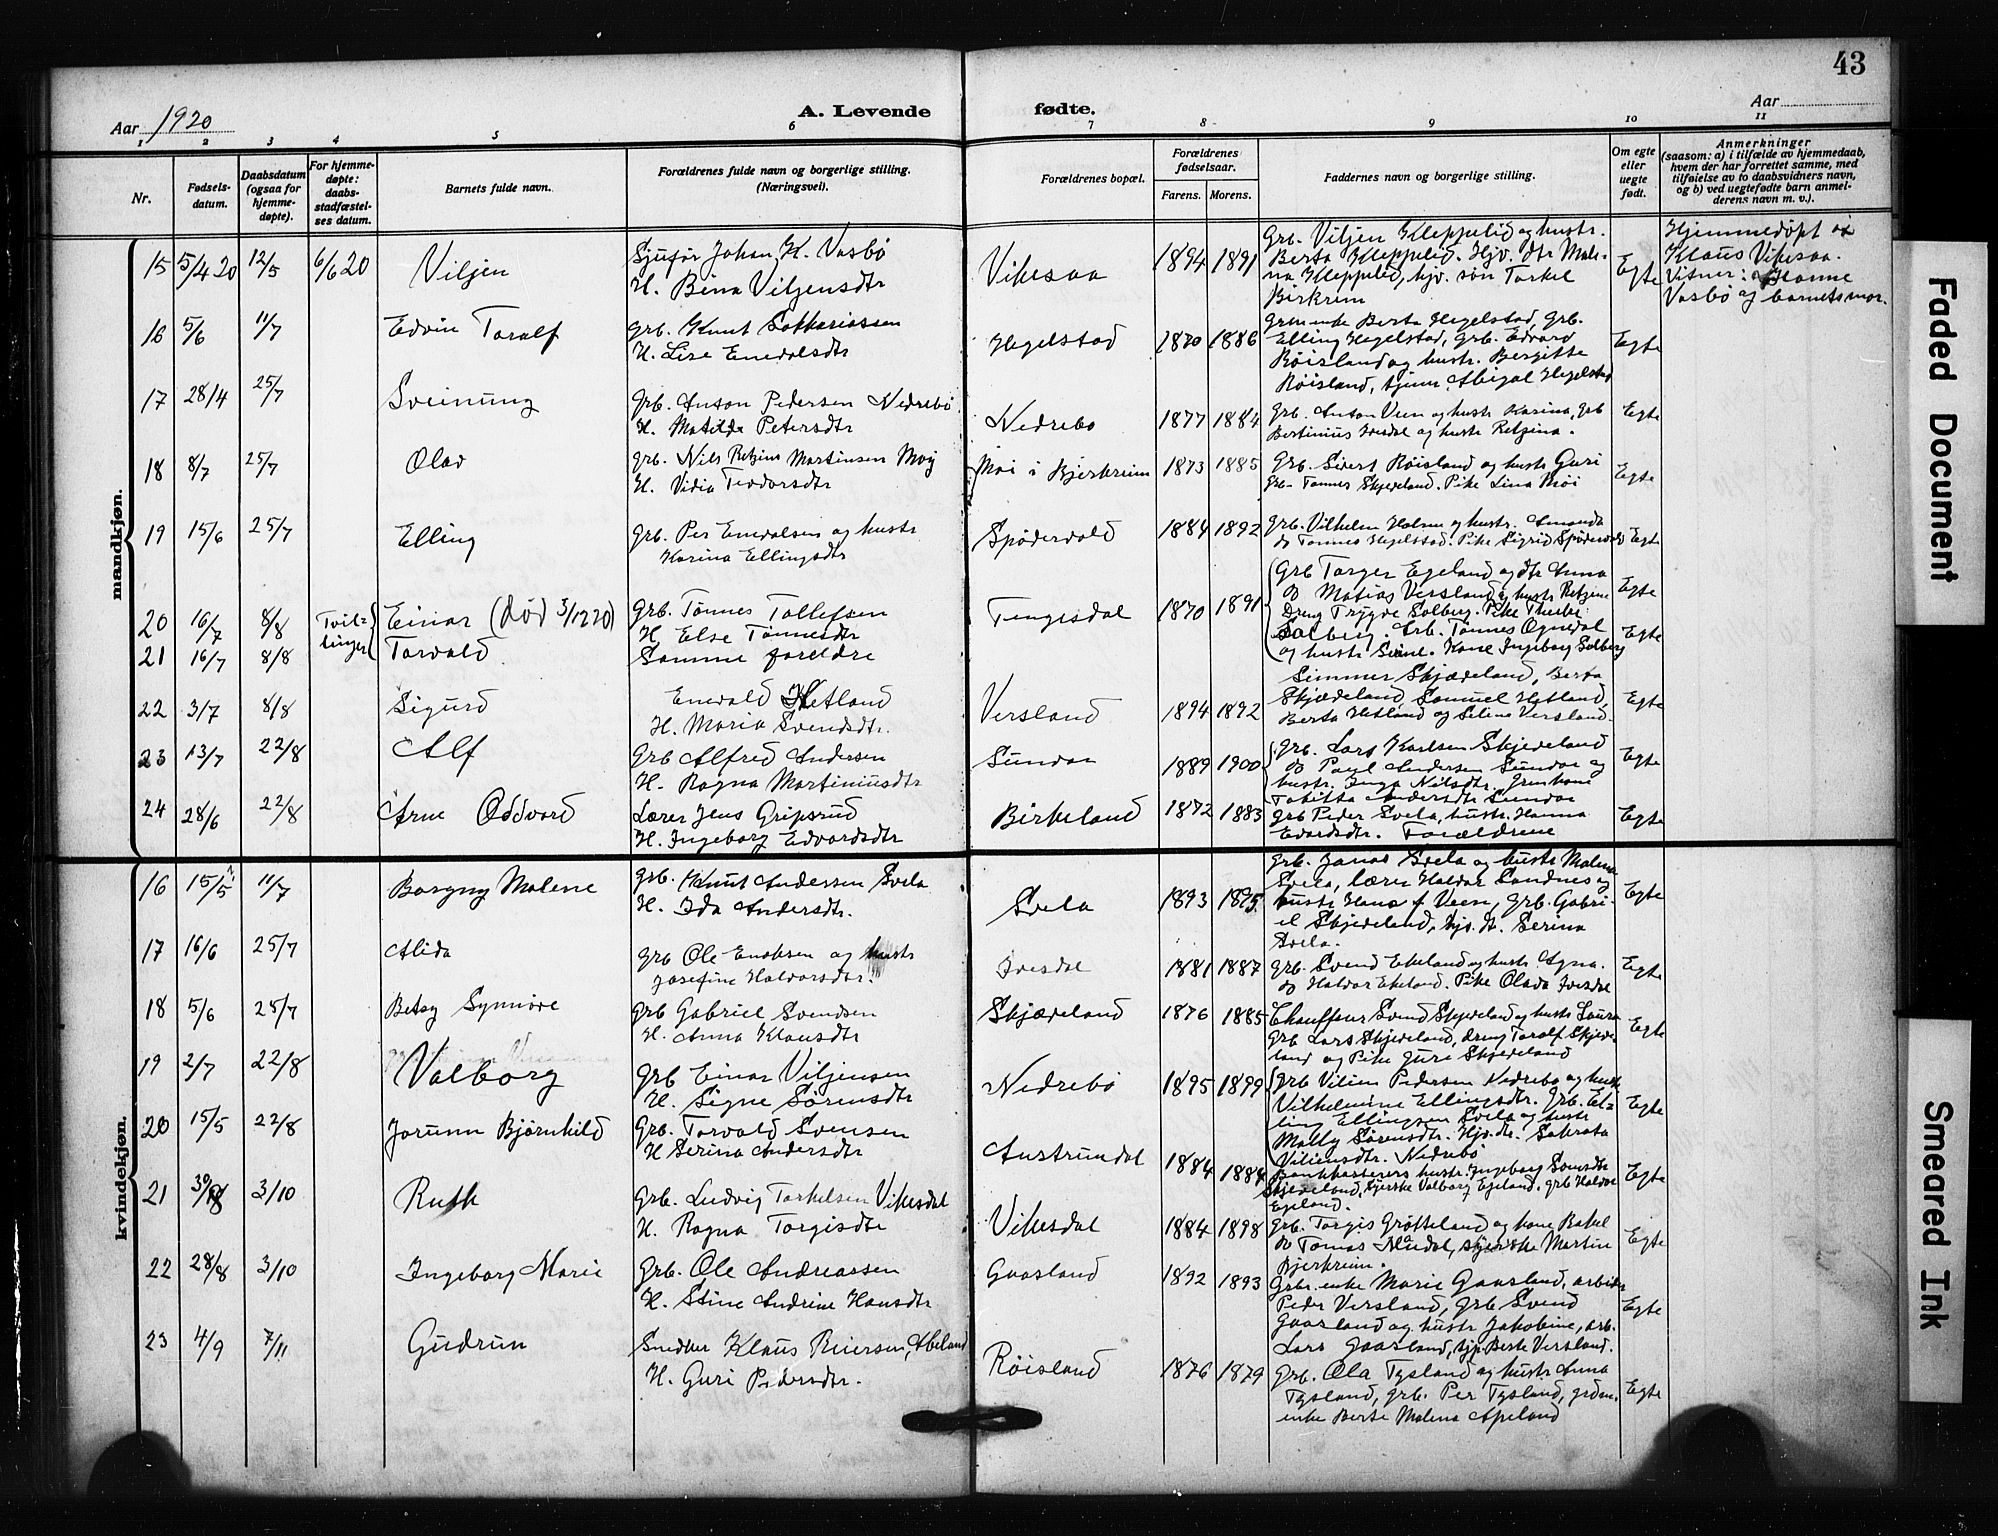 43
Aar 1920
A. Levende fødte.
Aar
1 2 3 4 5 6 7 8 9 10 11
Nr.
Fødsels-
datum.
Daabsdatum
(ogsaa for
hjemme-
døpte).
For hjemme-
døpte:
daabs-
stadfæstel-
ses datum.
Barnets fulde navn.
Forældrenes fulde navn og borgerlige stilling.
(Næringsvei).
Forældrenes bopæl.
Forældrenes
fødselsaar.
Farens. Morens.
Faddernes navn og borgerlige stilling.
Om egte
eller
uegte
født.
Anmerkninger
(saasom: a) i tilfælde av hjemmedaab,
hvem der har forrettet samme, med
tilføielse av to daabsvidners navn,
og b) ved uegtefødte barn anmel-
derens navn m. v.).
mandkjøn.
15 5/4 20 12/5 6/6 20 Viljen
Johan K. Vasbø
H. Bina Viljensdtr
Vikesaa 1894 1891
Grb. Viljen Kleppelid og hustr.
Berta Kleppelid. Hjv. dtr Male-
na Kleppelid, hjv. søn Torkel
Birkrem
Egte
Hjemmedøpt av
Klaus Vikesaa.
Vitner: Hanne
Vasbø og barnets mor.
16 5/6 11/7 Edvin Toralf
Grb. Knut Sakkariassen
H. Lise Enevalsdtr
Hegelstad 1870 1886
Grmenke Berta Hegelstad, Grb.
Elling Hegelstad, Grb. Edvard
Røisland og hustr. Bergitte
Røisland, tjener Abigal Hegelstad
Egte
17 28/4 25/7 Sveinung
Grb. Anton Pedersen Nedrebø
H. Matilde Petersdtr
Nedrebø 1877 1884
Grb. Anton Veen og hustr Karina, Grb
Bertinius Ivesdal og hustr Retzina.
Egte
18 8/7 25/7 Olav
Grb. Nils Retzius Martinsen Moi
H. Vidia Teodorsdtr
Moi i Bjerkreim 1873 1885
Grb. Sivert Røisland og hustr Guri
Grb. Tønnes Skjæveland. Pike Lina Moi
Egte
19 15/6 25/7 Elling
Grb. Per Enevalsen og hustr
Karina Ellingsdtr
Spødervold 1884 1892
Grb. Vilhelm Holmen og hustr. Amanda
do Tønnes Hegelstad. Pike Sigrid Spødervold
Egte
20 16/7 8/8 Tvil-
linger
Einar (død 3/12 20)
Grb. Tønnes Tollefsen
H. Else Tønnesdtr
Tengesdal 1870 1891
Grb Torger Egeland og dtr Anna
do Matias Versland og hustr Retzine
Dreng Trygve Solberg. Pike Thurbe
Solberg. Arb. Tønnes Ognedal
og hustr Sina. Kone Ingeborg Solberg
Egte
21 16/7 8/8 Torvald
Samme foreldre
Egte
22 3/7 8/8 Sigurd
Enevald Hetland
H. Maria Svendsdtr.
Versland 1894 1892
Simmer Skjæveland, Berta
Skjæveland, Samuel Hetland,
Berta Hetland og Selina Versland.
Egte
23 13/7 22/8 Alf
Grb Alfred Andersen
H. Ragna Martiniusdtr
Sundvor 1889 1900
Grb. Lars Karlsen Skjæveland
do Paul Andersen Sundvor og
hustr. Inga Nilsdtr. Grmkone
Tobitta Andersdtr Sundvor
Egte
24 28/6 22/8 Arne Oddvard
Lærer Jens Gripsrud
H. Ingeborg Edvardsdtr
Birkeland 1872 1883
Grb Peder Svela, hustr. Hanna
Edvardsdtr. Forældrene
Egte
kvindekjøn.
16 15/5 11/7 Borgny Malene
Grb. Knut Andersen Svela
H. Ida Andersdtr.
Svela 1893 1895
Grb. Jonas Svela og hustr Malena
Svela, lærer Haldor Sandnes og
hustr Hana f. Veen, Grb. Gabri-
el Skjæveland, hjv. dt. Serina
Svela.
Egte
17 16/6 25/7 Alida
Grb Ole Enoksen og hustr
Josefine Haldorsdtr.
Ivesdal 1881 1887
Grb. Svend Ekeland og hustr. Agna.
do Haldor Ekeland. Pike Olava Ivesdal
Egte
18 5/6 25/7 Betsy Synnøve
Grb Gabriel Svendsen
H. Anna Klausdtr
Skjæveland 1876 1885
Chauffeur Svend Skjæveland og hustr Laura
Grb Lars Skjæveland, dreng Toralf Skjæve-
land og Pike Guri Skjæveland
Egte
19 2/7 22/8 Valborg
Grb Einar Viljensen
H. Signe Sørensdtr
Nedrebø 1895 1899
Grb Viljen Pedersen Nedrebø og hustr
Vilhelmine Ellingsdtr. Grb. El-
ling Ellingsen Svela og hustr
Mally Sørensdtr. Hjv. dtr. Sakrata
Viliensdtr. Nedrebø
Egte
20 15/5 22/8 Jorunn Bjørnhild
Grb. Torvald Svensen
H Serina Andersdtr
Austrumdal 1884 1884
Bankkasserers hustr. Ingeborg Svensdtr
Skjæveland, Valborg Egeland. Grb Haldor
Egeland.
Egte
21 30/8 3/10 Ruth
Grb. Ludvig Torkelsen Vikesdal
H. Ragna Torgisdtr
Vikesdal 1884 1898
Grb. Torgis Grøtteland og kone Rakel
do Tomas Nådal, Martin
Bjerkreim.
Egte
22 28/8 3/10 Ingeborg Marie
Grb. Ole Andreassen
H. Stine Andrine Hansdtr
Gaasland 1892 1893
Grbr. enke Marie Gaasland, arbeider
Peder Versland, Grb Svend
Gaasland og hustr Jakobine, arb.
Lars Gaasland, tjp. Berte Versland.
Egte
23 4/9 7/11 Gudrun
Snedker Klaus Reiersen Apeland
H. Guri Pedersdtr.
Røisland 1876 1879
Grb. Ola Tysland og hustr Anna
Tysland, Grb. Per Tysland, grdm.
enke Berte Malena Apeland
Egte
Faded Document
Smeared Ink